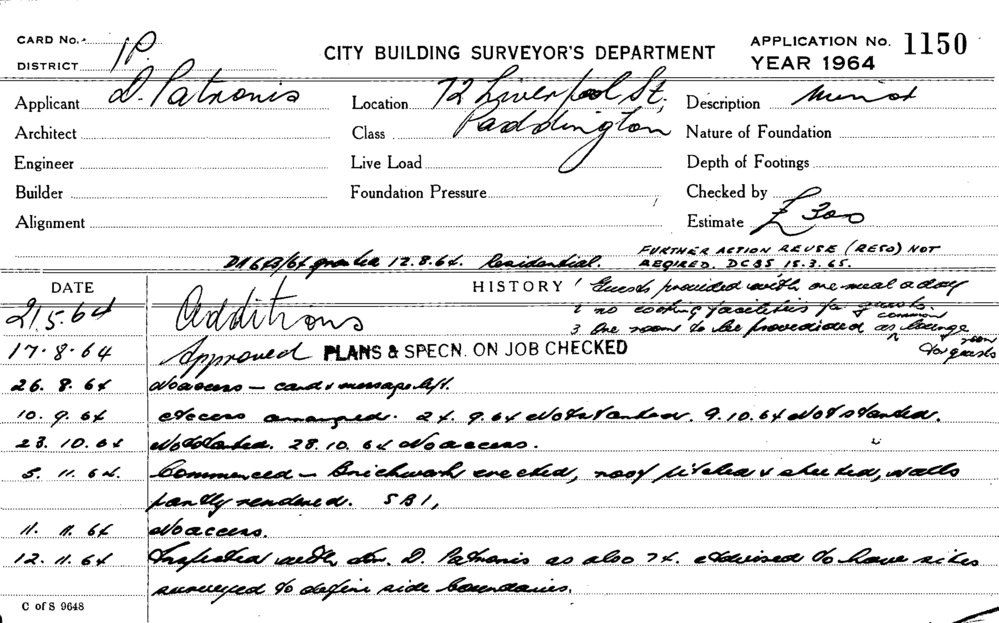 CARD No. 1P.
CITY BUILDING SURVEYOR'S DEPARTMENT
APPLICATION No. 1150
DISTRICT
YEAR 1964
Applicant D. Patronis Location 72 Liverpool St, Description Minor
Architect Class Paddington Nature of Foundation
Engineer Live Load Depth of Footings
Builder Foundation Pressure Checked by
Alignment Estimate £300
FURTHER ACTION REUSE (RESO) NOT
granted 12.8.64. Residential. REQIRED. DCBS 15.3.65.
DATE HISTORY 1 Guests provided with one meal a day
21.5.64 Additions 2 no cooking facilities for guests
3 One room to be provedided as common lounge room
for guests
17.8.64 Approved PLANS & SPECN. ON JOB CHECKED
26.8.64 No access - card & message left.
10.9.64 Access arranged. 24.9.64 Not started. 9.10.64 Not started.
23.10.64 Not started. 28.10.64 No access.
5.11.64. Commenced - Brickwork erected, roof pitched & sheeted, walls
partly rendered. SB1,
11.11.64 No access.
12.11.64 Inspected with Mr. D. Patronis as also 74. Advised to have sites
surveyed to define side boundaries.
C of S 9648